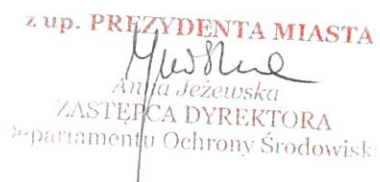 z up. PREZYDENTA MIASTA
Anna Jeżewska
ZASTĘPCA DYREKTORA
Departamentu Ochrony Środowisk